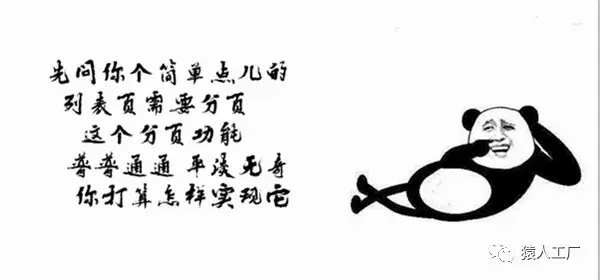 先问你个简单点儿的
列表页需要分页
这个分页功能
普普通通 平淡无奇
你打算怎样实现它
猿人工厂